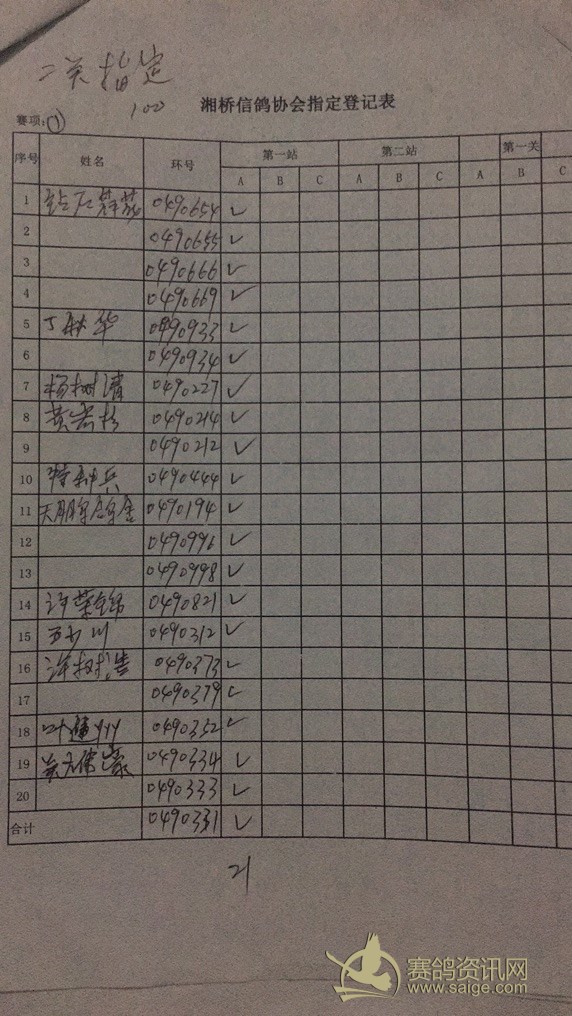 二关指定
100
湘桥信鸽协会指定登记表
赛项:①
序号 姓名 环号 第一站 第二站 第一关
A B C A B C A B C
1 0490654 ✓
2 0490655 ✓
3 0490666 ✓
4 0490669 ✓
5 丁耿华 0490933 ✓
6 0490934 ✓
7 杨树清 0490227 ✓
8 0490214 ✓
9 0490212 ✓
10 特种兵 0490444 ✓
11 0490194 ✓
12 0490996 ✓
13 0490998 ✓
14 许荣锦 0490821 ✓
15 0490312 ✓
16 许树浩 0490373 ✓
17 0490379 ✓
18 0490352 ✓
19 0490334 ✓
20 0490333 ✓
合计 0490331 ✓
21
赛鸽资讯网
www.saige.com